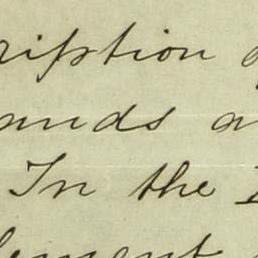 ription
ands
In the
lement